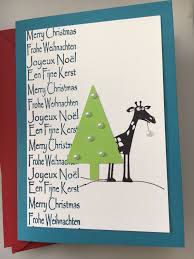 Merry Christmas
Frohe Weihnachten
Joyeux Noël
Een Fijne Kerst
Merry Christmas
Frohe Weihnachten
Joyeux Noël
Een Fijne Kerst
Merry Christmas
Frohe Weihnachten
Joyeux Noël
Een Fijne Kerst
Merry Christmas
Frohe Weihnachten